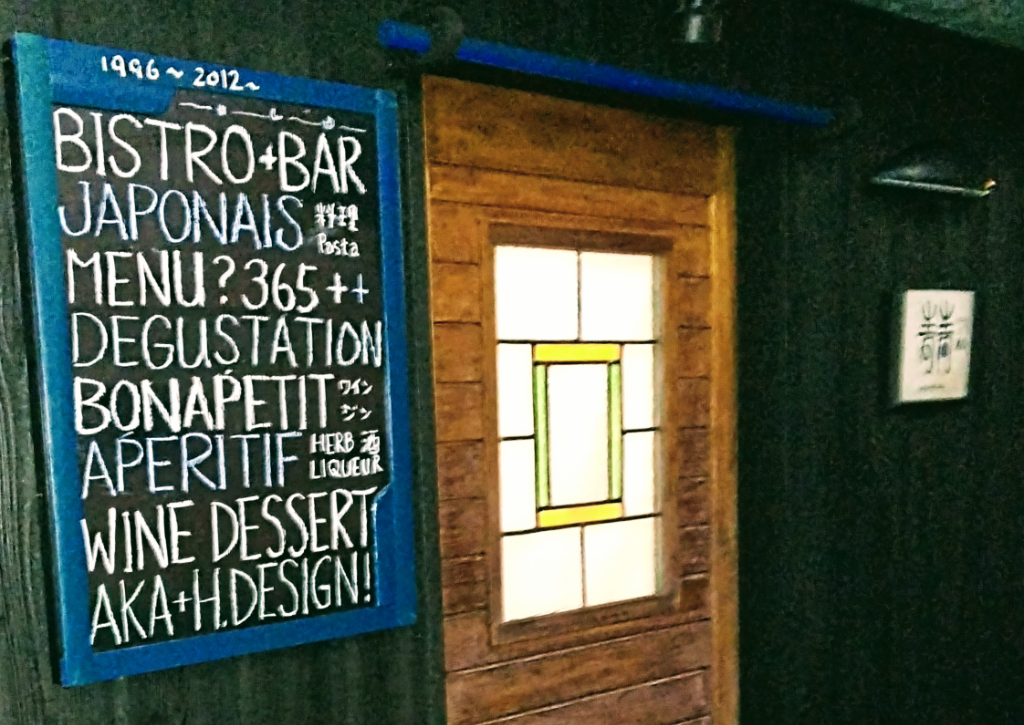 1996~2012~
BISTRO+BAR
JAPONAIS 料理
Pasta
MENU?365++
DEGUSTATION
BONAPETIT ワイン
ジン
APERITIF HERB 酒
LIQUEUR
WINE DESSERT
AKA+H.DESIGN!